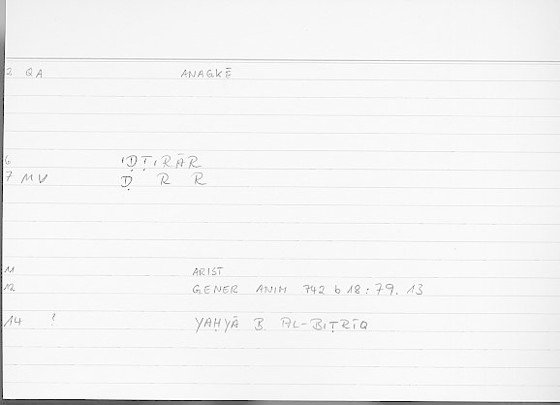 2 QA ANAGKĒ
6 IḌṬIRĀR
7 MV Ḍ R R
11 ARIST
12 GENER ANIM 742 b 18 : 79. 13
14 ! YAḤYĀ B. AL-BIṬRĪQ